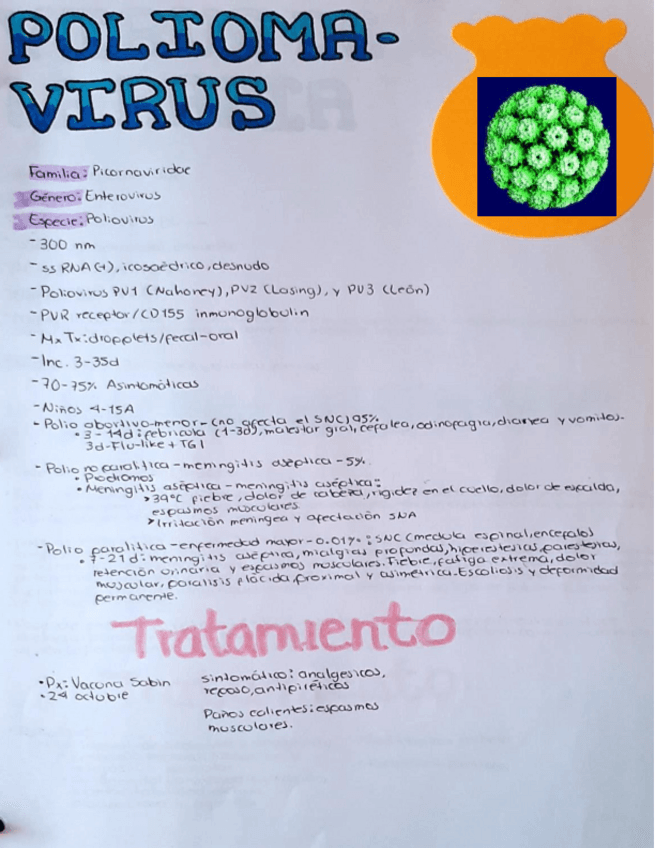 POLIOMA-
VIRUS
Familia: Picornaviridae
Género: Enterovirus
Especie: Poliovirus
- 300 nm
- ss RNA(+), icosaédrico, desnudo
- Poliovirus PV1 (Mahoney), PV2 (Lasing), y PV3 (León)
- PVR receptor/CD155 inmunoglobulin
- Mx Tx: dropplets/fecal-oral
- Inc. 3-35d
- 70-75% Asintomáticas
- Niños 4-15A
- Polio abortivo-menor - (no afecta el SNC) 95%
• 3-14d: febrícula (1-3d), malestar gral, cefalea, odinofagia, diarrea y vomitos.
3d-Flu-like + TGI
- Polio no paralítica - meningitis aséptica - 5%.
• Prodromos
• Meningitis aséptica - meningitis aséptica:
> 39°C fiebre, dolor de cabeza, rigidez en el cuello, dolor de espalda,
espasmos musculares
> Irritación meningea y afectación SNA
- Polio paralitica - enfermedad mayor - 0.01%: SNC (medula espinal, encefalo)
• 7-21d: meningitis aséptica, mialgias profundas, hiperestesias, parestesias,
retención urinaria y espasmos musculares. Fiebre, fatiga extrema, dolor
muscular, paralisis flácida, proximal y asimétrica. Escoliosis y deformidad
permanente.
Tratamiento
• Px: Vacuna Sabin
• 24 octubre
Sintomático: analgesicos,
reposo, antipiréticos
Paños calientes: espasmos
musculares.